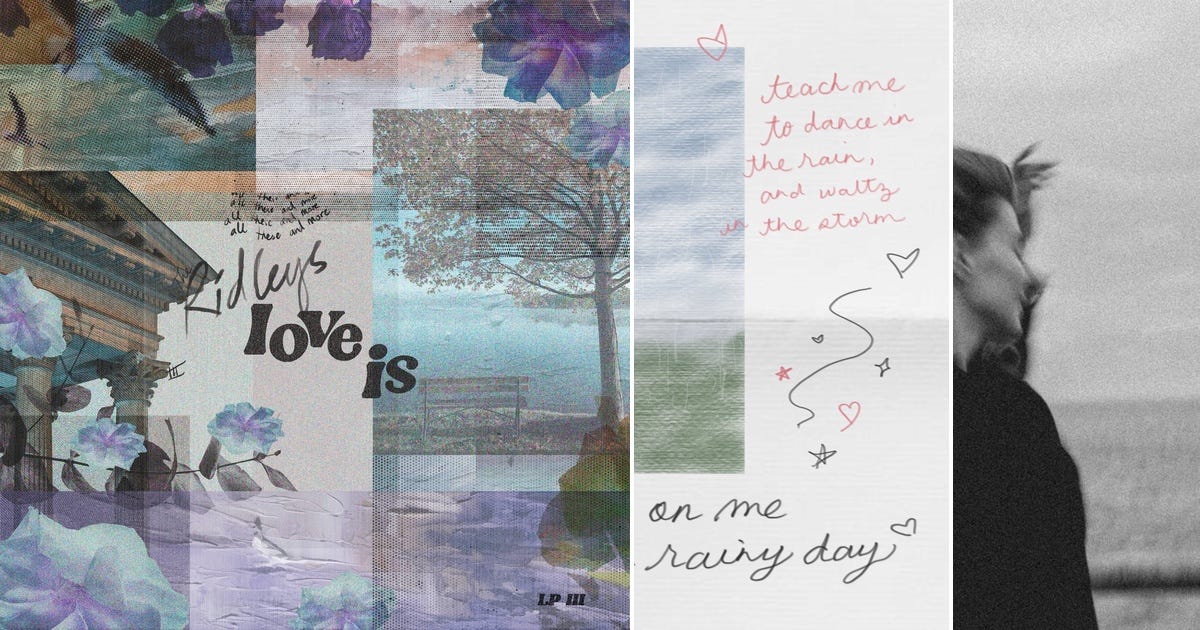 all these and more
all these and more
all these and more
Ridleys
love
is
III
LP III
teach me
to dance in
the rain,
and waltz
in the storm
on me
rainy day